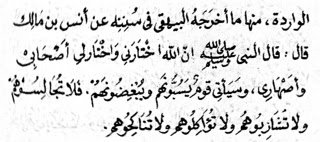 الواردة، منها ما أخرجَهُ البيهقى فى سُنِنِه عن أنس بن مالك
قال : قال النبى ﷺ إنّ الله اختارَنى وَاختارَلي أَصْحابى
وأَصْهَارِى، وسَيَأتى قومٌ يَسُبُّونَهُمْ ويُبْغِضُونَهُمْ. فَلا تُجالِسُوْهُمْ
ولا تُشَارِبُوهُمْ ولا تُؤَاكِلُوهُمْ ولا تُنَاكِحُوهُمْ.